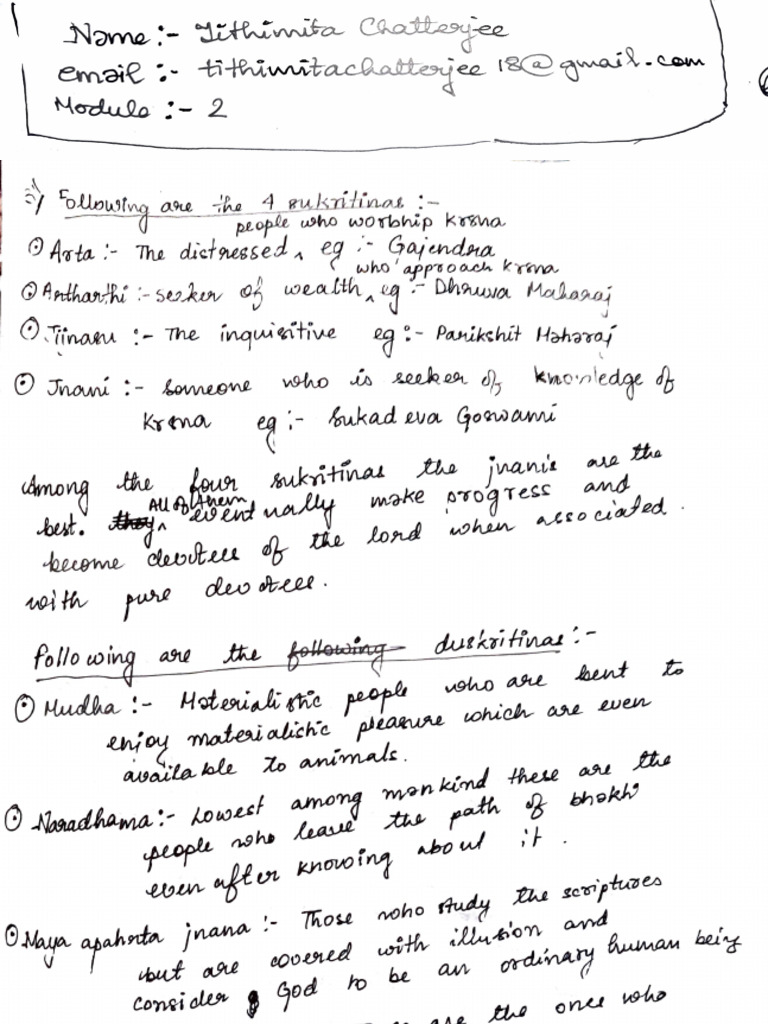 Name :- Tithimita Chatterjee
email :- tithimitachatterjee18@gmail.com
Module :- 2
Following are the 4 sukritinas :-
people who worship krsna
⊙ Arta :- The distressed ^ eg :- Gajendra
who approach krsna
⊙ Artharthi :- seeker of wealth ^ eg :- Dhruva Maharaj
⊙ Jijnasu :- The inquisitive eg :- Parikshit Maharaj
⊙ Jnani :- someone who is seeker of knowledge of
Krsna eg :- Sukadeva Goswami
Among the four sukritinas the jnanis are the
best. they ^ All of them eventually make progress and
become devotees of the lord when associated
with pure devotees.
following are the following duskritinas :-
⊙ Mudha :- Materialistic people who are bent to
enjoy materialistic pleasure which are even
available to animals.
⊙ Naradhama :- Lowest among mankind these are the
people who leave the path of bhakti
even after knowing about it.
⊙ Maya apahrita jnana :- Those who study the scriptures
but are covered with illusion and
consider God to be an ordinary human being
are the ones who